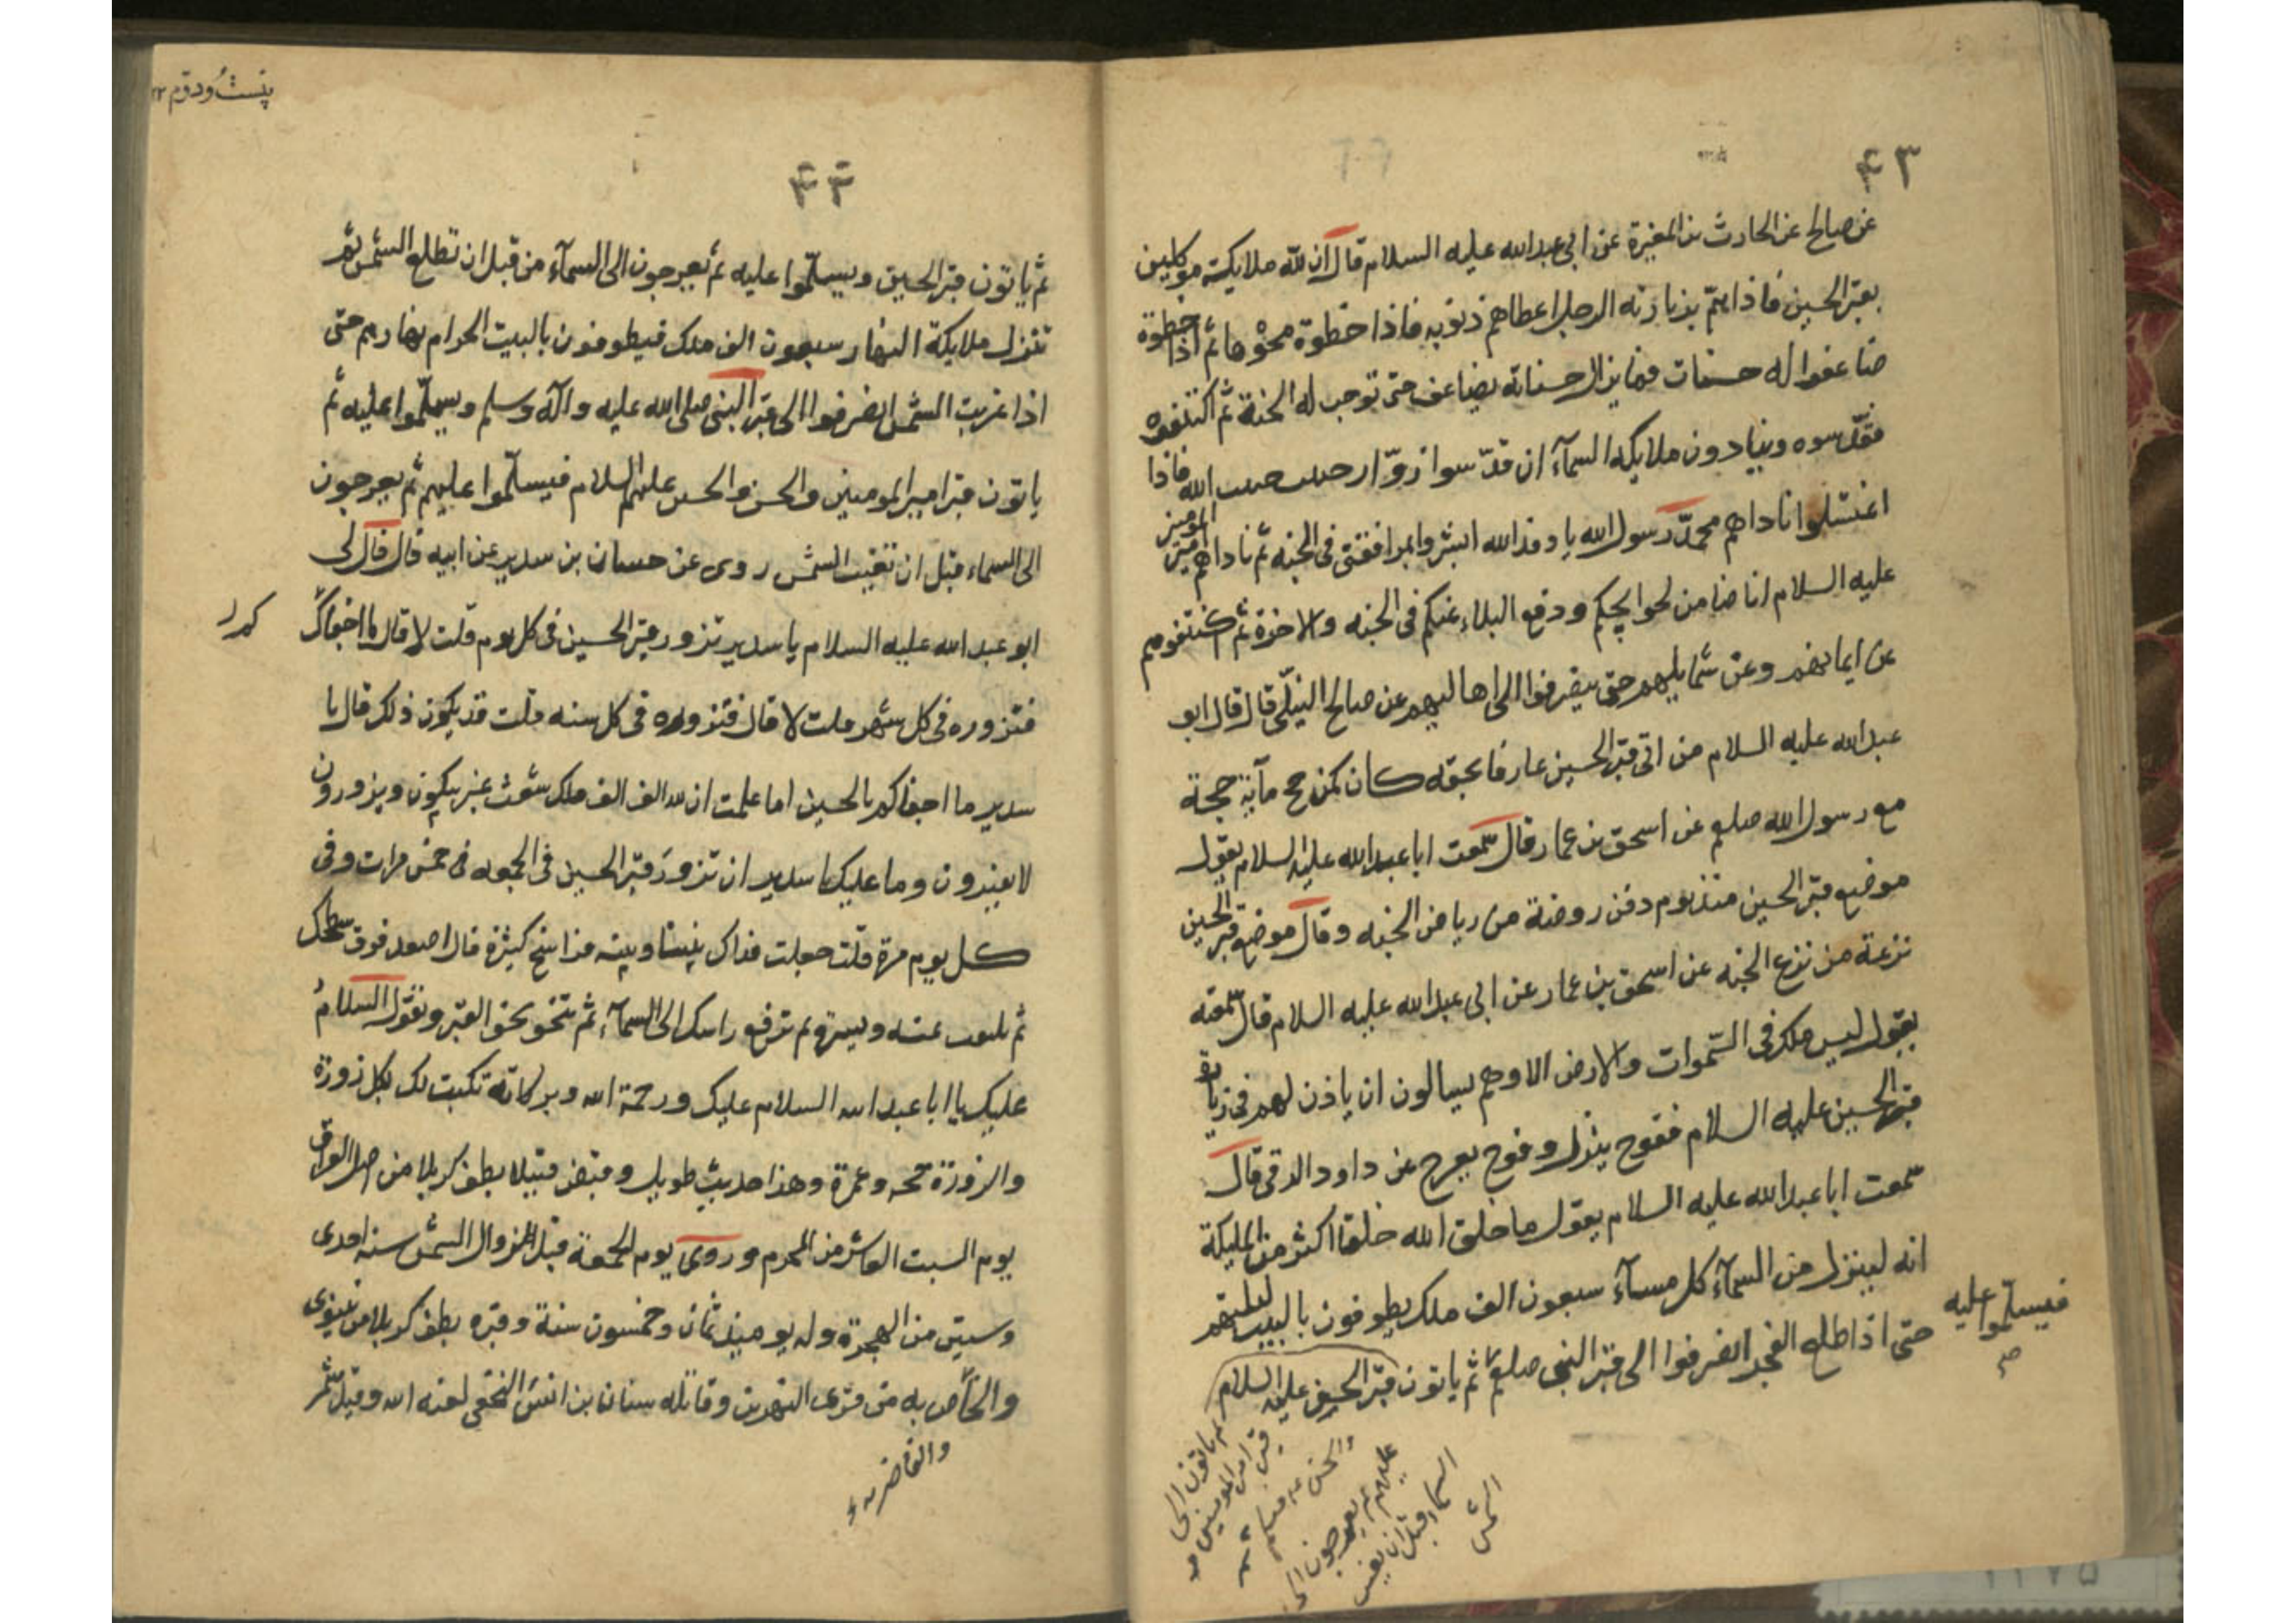 ۴۳
عن صالح عن الحارث بن المغيرة عن ابى عبدالله عليه السلام قال ان لله ملايكة موكلين
بقبر الحسين فاذا هم بزيارته الرجل اعطاهم ذنوبه فاذا خطوة محوها ثم اذا خطوة
ضاعفوا له حسنات فما يزال حسناته يضاعف حتى توجب له الجنة ثم اكتنفوه
فقدّسوه وينادون ملايكة السمآء ان قدّسوا زوّار حبيب حبيب الله فاذا
اغتسلوا ناداهم محمدّ رسول الله يا وفد الله ابشروا بمرافقتى فى الجنه ثم ناداهم امير المومنين
عليه السلام انا ضامن لحوايجكم ودفع البلاء عنكم فى الجنه والاخرة ثم اكتنفوهم
عن ايمانهم وعن شمايلهم حتى ينصرفوا الى اهاليهم عن صالح النيلّى قال قال ابو
عبدالله عليه السلام من اتى قبر الحسين عارفا بحقه كان كمن حج مآية حجة
مع رسول الله صلعم عن اسحق بن عمار قال سمعت ابا عبدالله عليه السلام يقول
موضع قبر الحسين منذ يوم دفن روضة من رياض الجنه وقال موضع قبر الحسين
نزعة من نزع الجنه عن اسحق بن عمار عن ابى عبدالله عليه السلام قال سمعته
يقول ليس ملك فى السّموات والارض الا وهم يسالون ان ياذن لهم فى زيارة
قبر الحسين عليه السلام ففوج ينزل وفوج يعرج عن داود الرقى قال
سمعت ابا عبدالله عليه السلام يقول ما خلق الله خلقا اكثر من المليكة
انه لينزل من السمآء كل مسآء سبعون الف ملك يطوفون بالبيت ليلتهم
حتى اذا طلع الفجر انصرفوا الى قبر النبى صلعم ثم ياتون قبر الحسين عليه السلام
فيسلّموا عليه
ثم ياتون الى
قبر امير المومنين
والحسن
عليهم ثم يعرجون الى
السماء قبل ان تغيب
الشمس
۴۴
ثم ياتون قبر الحسين ويسلّموا عليه ثم يعرجون الى السمآء من قبل ان تطلع الشمس ثم
تنزل ملايكة النهار سبعون الف ملك فيطوفون بالبيت الحرام نهارهم حتى
اذا غربت الشمس انصرفوا الى قبر النبى صلى الله عليه وآله وسلم ويسلّموا عليه ثم
ياتون قبر امير المومنين والحسن والحسين عليهم السلام فيسلّموا عليهم ثم يعرجون
الى السماء قبل ان تغيب الشمس روى عن حسان بن سدير عن ابيه قال قال لى
ابو عبدالله عليه السلام يا سدير تزور قبر الحسين فى كل يوم قلت لا قال ما اجفاك
فتزوره فى كل شهر قلت لا قال فتزوره فى كل سنه قلت قد يكون ذلك قال يا
سدير ما اجفاكم بالحسين اما علمت ان لله الف الف ملك شعث غبر يبكون ويزورون
لا يفترون وما عليك يا سدير ان تزور قبر الحسين فى الجمعه فى خمس مرات وفى
كل يوم مرة قلت جعلت فداك بيننا وبينه فراسخ كثيرة قال اصعد فوق سطحك
ثم تلتفت يمنه ويسرة ثم ترفع راسك الى السمآء ثم تنحو نحو القبر وتقول السلامُ
عليك يا ابا عبدالله السلام عليك ورحمة الله وبركاته تكتب لك بكل زورة
والزورة حجه وعمرة وهذا حديث طويل وقبض قتيلا بطف كربلا من ارض العراق
يوم السبت العاشر من المحرم وروى يوم الجمعة قبل الزوال الشمس سنه احدى
وستين من الهجرة وله يوميذ ثمان وخمسون سنة وقبره بطف كربلا من نينوى
والخاص به من قرى النهرين وقاتله سنان بن انس النخعى لعنه الله وقيل شمر
والغاضريه